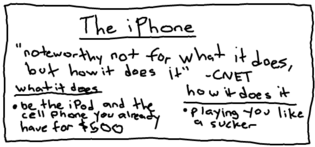 The iPhone
"noteworthy not for what it does,
but how it does it" -CNET
what it does
• be the iPod and the
cell phone you already
have for $500
how it does it
• playing you like
a sucker